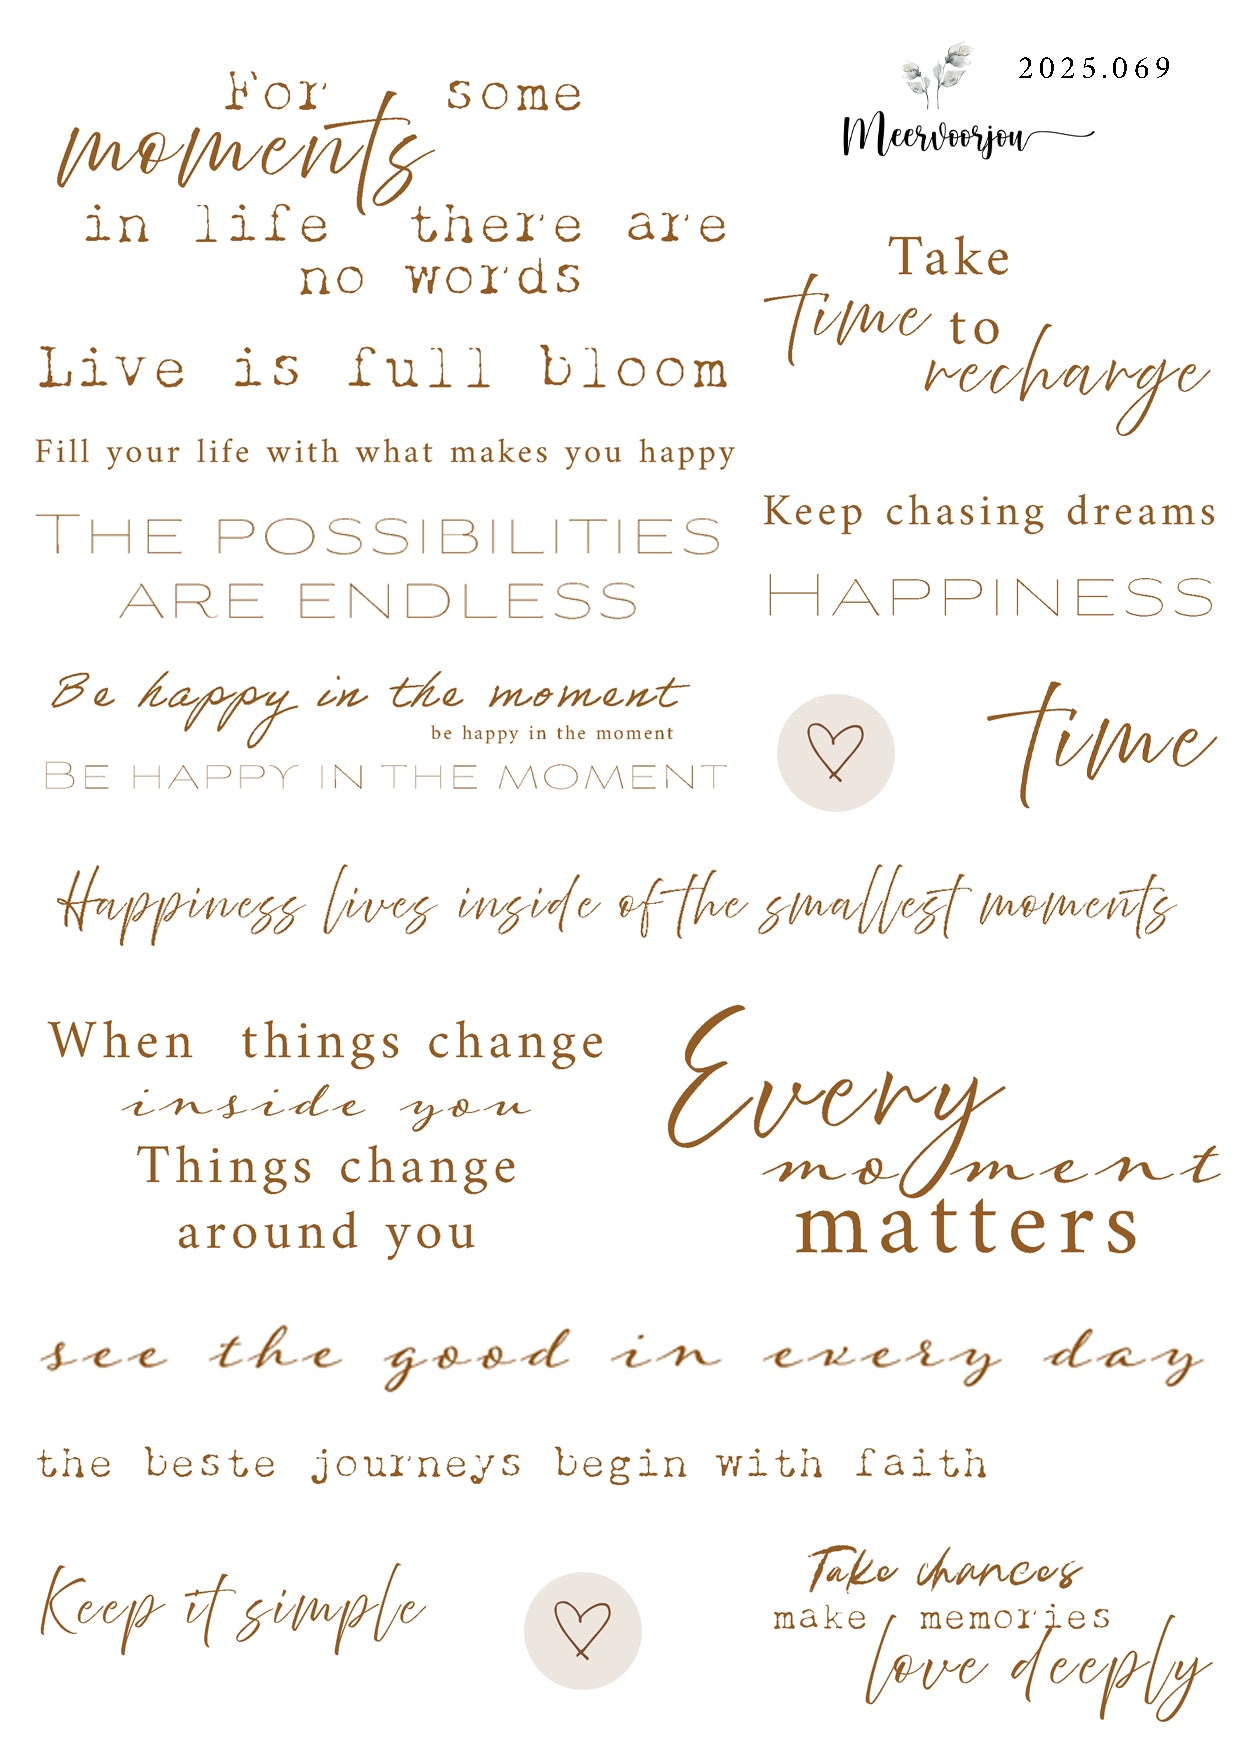 For some
moments
in life there are
no words
Live is full bloom
Fill your life with what makes you happy
THE POSSIBILITIES
ARE ENDLESS
Be happy in the moment
be happy in the moment
BE HAPPY IN THE MOMENT
2025.069
Meervoorjou
Take
time to
recharge
Keep chasing dreams
HAPPINESS
time
Happiness lives inside of the smallest moments
When things change
inside you
Things change
around you
Every
moment
matters
see the good in every day
the beste journeys begin with faith
Keep it simple
Take chances
make memories
love deeply